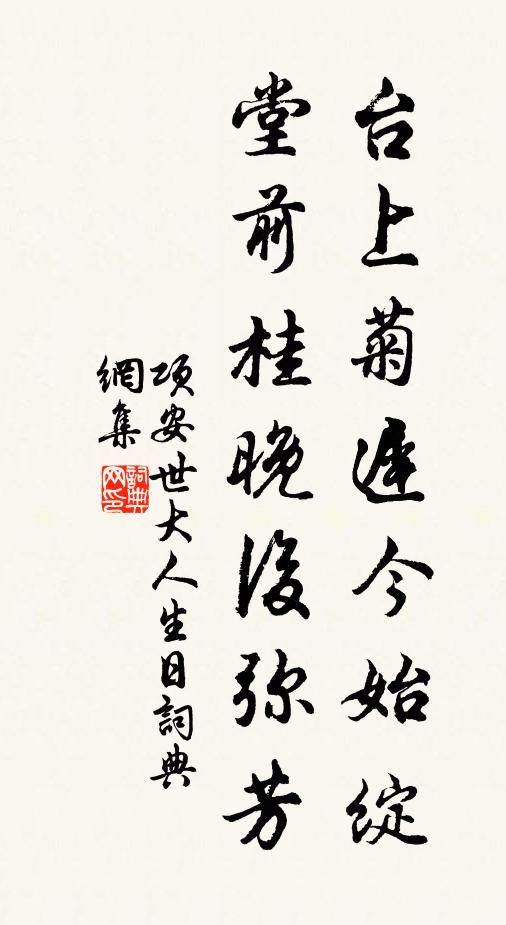 台上菊遲今始綻
堂前桂晚後弥芳
項安世大人生日詞典
網集
詞典
网印